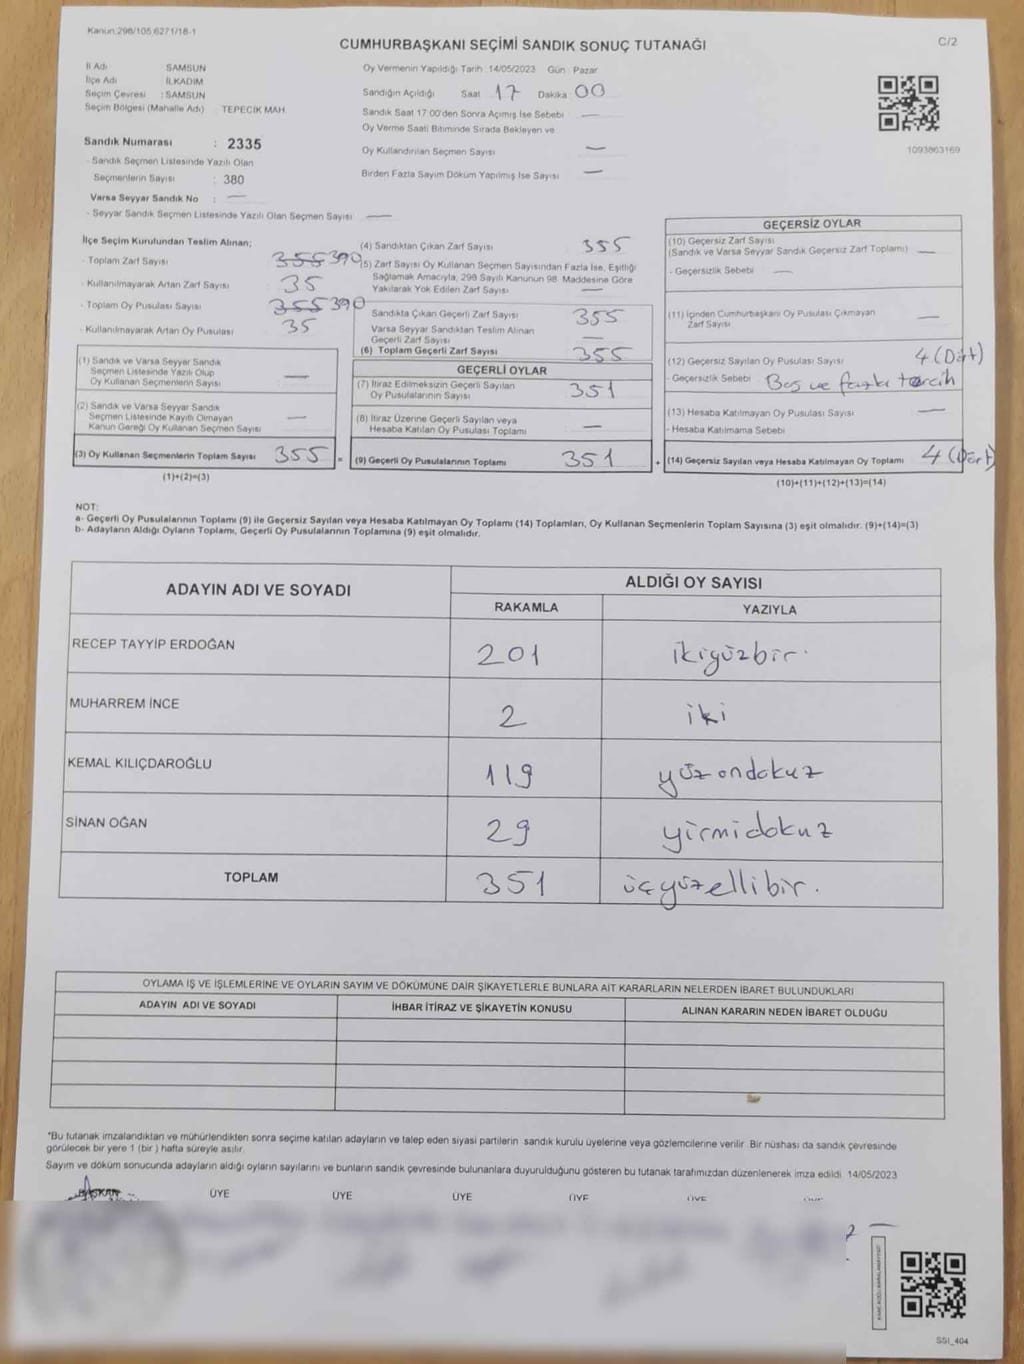 Kanun:298/105,6271/18-1
C/2
CUMHURBAŞKANI SEÇİMİ SANDIK SONUÇ TUTANAĞI
İl Adı SAMSUN
İlçe Adı İLKADIM
Seçim Çevresi : SAMSUN
Seçim Bölgesi (Mahalle Adı) TEPECİK MAH.
Sandık Numarası : 2335
- Sandık Seçmen Listesinde Yazılı Olan
Seçmenlerin Sayısı : 380
Varsa Seyyar Sandık No : —
- Seyyar Sandık Seçmen Listesinde Yazılı Olan Seçmen Sayısı —
Oy Vermenin Yapıldığı Tarih :14/05/2023 Gün : Pazar
Sandığın Açıldığı Saat 17 Dakika 00
Sandık Saat 17:00'den Sonra Açımış İse Sebebi —
Oy Verme Saati Bitiminde Sırada Bekleyen ve
Oy Kullandırılan Seçmen Sayısı —
Birden Fazla Sayım Döküm Yapılmış İse Sayısı —
1093863169
İlçe Seçim Kurulundan Teslim Alınan;
- Toplam Zarf Sayısı 355 390
- Kullanılmayarak Artan Zarf Sayısı 35
- Toplam Oy Pusulası Sayısı 355 390
- Kullanılmayarak Artan Oy Pusulası 35
(1) Sandık ve Varsa Seyyar Sandık
Seçmen Listesinde Yazılı Olup
Oy Kullanan Seçmenlerin Sayısı —
(2) Sandık ve Varsa Seyyar Sandık
Seçmen Listesinde Kayıtlı Olmayan
Kanun Gereği Oy Kullanan Seçmen Sayısı —
(3) Oy Kullanan Seçmenlerin Toplam Sayısı 355 =
(1)+(2)=(3)
(4) Sandıktan Çıkan Zarf Sayısı 355
(5) Zarf Sayısı Oy Kullanan Seçmen Sayısından Fazla İse, Eşitliği
Sağlamak Amacıyla, 298 Sayılı Kanunun 98. Maddesine Göre
Yakılarak Yok Edilen Zarf Sayısı —
Sandıkta Çıkan Geçerli Zarf Sayısı 355
Varsa Seyyar Sandıktan Teslim Alınan
Geçerli Zarf Sayısı —
(6) Toplam Geçerli Zarf Sayısı 355
GEÇERLİ OYLAR
(7) İtiraz Edilmeksizin Geçerli Sayılan
Oy Pusulalarının Sayısı 351
(8) İtiraz Üzerine Geçerli Sayılan veya
Hesaba Katılan Oy Pusulası Toplamı —
(9) Geçerli Oy Pusulalarının Toplamı 351 +
GEÇERSİZ OYLAR
(10) Geçersiz Zarf Sayısı
(Sandık ve Varsa Seyyar Sandık Geçersiz Zarf Toplamı) —
- Geçersizlik Sebebi —
(11) İçinden Cumhurbaşkanı Oy Pusulası Çıkmayan
Zarf Sayısı —
(12) Geçersiz Sayılan Oy Pusulası Sayısı 4 (Dört)
- Geçersizlik Sebebi Boş ve fazla tercih
(13) Hesaba Katılmayan Oy Pusulası Sayısı —
- Hesaba Katılmama Sebebi
(14) Geçersiz Sayılan veya Hesaba Katılmayan Oy Toplamı 4 (Dört)
(10)+(11)+(12)+(13)=(14)
NOT:
a- Geçerli Oy Pusulalarının Toplamı (9) ile Geçersiz Sayılan veya Hesaba Katılmayan Oy Toplamı (14) Toplamları, Oy Kullanan Seçmenlerin Toplam Sayısına (3) eşit olmalıdır. (9)+(14)=(3)
b- Adayların Aldığı Oyların Toplamı, Geçerli Oy Pusulalarının Toplamına (9) eşit olmalıdır.
ADAYIN ADI VE SOYADI
ALDIĞI OY SAYISI
RAKAMLA YAZIYLA
RECEP TAYYİP ERDOĞAN 201 ikiyüzbir.
MUHARREM İNCE 2 iki
KEMAL KILIÇDAROĞLU 119 yüzondokuz
SİNAN OĞAN 29 yirmidokuz
TOPLAM 351 üçyüzellibir.
OYLAMA İŞ VE İŞLEMLERİNE VE OYLARIN SAYIM VE DÖKÜMÜNE DAİR ŞİKAYETLERLE BUNLARA AİT KARARLARIN NELERDEN İBARET BULUNDUKLARI
ADAYIN ADI VE SOYADI İHBAR İTİRAZ VE ŞİKAYETİN KONUSU ALINAN KARARIN NEDEN İBARET OLDUĞU
*Bu tutanak imzalandıktan ve mühürlendikten sonra seçime katılan adayların ve talep eden siyasi partilerin sandık kurulu üyelerine veya gözlemcilerine verilir. Bir nüshası da sandık çevresinde
görülecek bir yere 1 (bir) hafta süreyle asılır.
Sayım ve döküm sonucunda adayların aldığı oyların sayılarını ve bunların sandık çevresinde bulunanlara duyurulduğunu gösteren bu tutanak tarafımızdan düzenlenerek imza edildi. 14/05/2023
BAŞKAN ÜYE ÜYE ÜYE ÜYE ÜYE
SSI_404